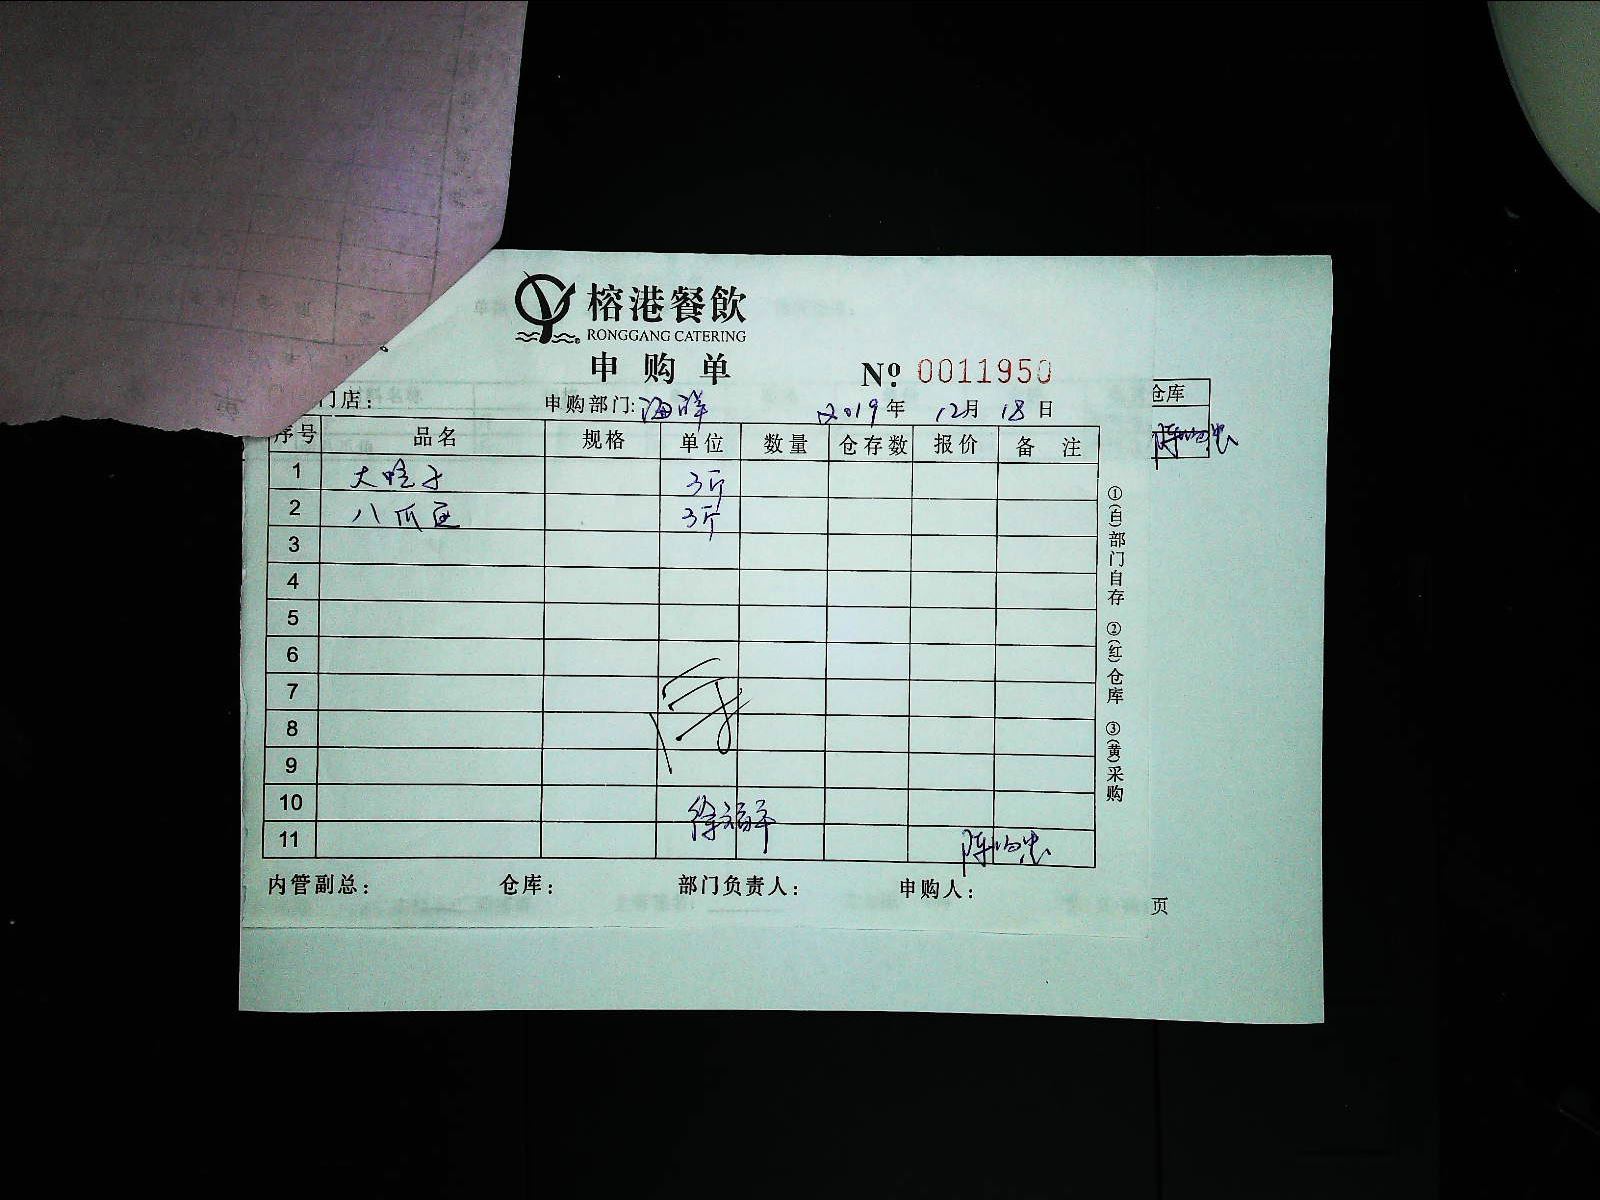 榕港餐飲
RONGGANG CATERING
申购单
Nº 0011950
门店： 申购部门：海鲜 2019年 12月 18日
仓库
序号 品名 规格 单位 数量 仓存数 报价 备注
1 大蛤子 3斤
2 八爪鱼 3斤
3
4
5
6
7
8
9
10
11
内管副总： 仓库： 部门负责人： 申购人：
①(白)部门自存 ②(红)仓库 ③(黄)采购
页